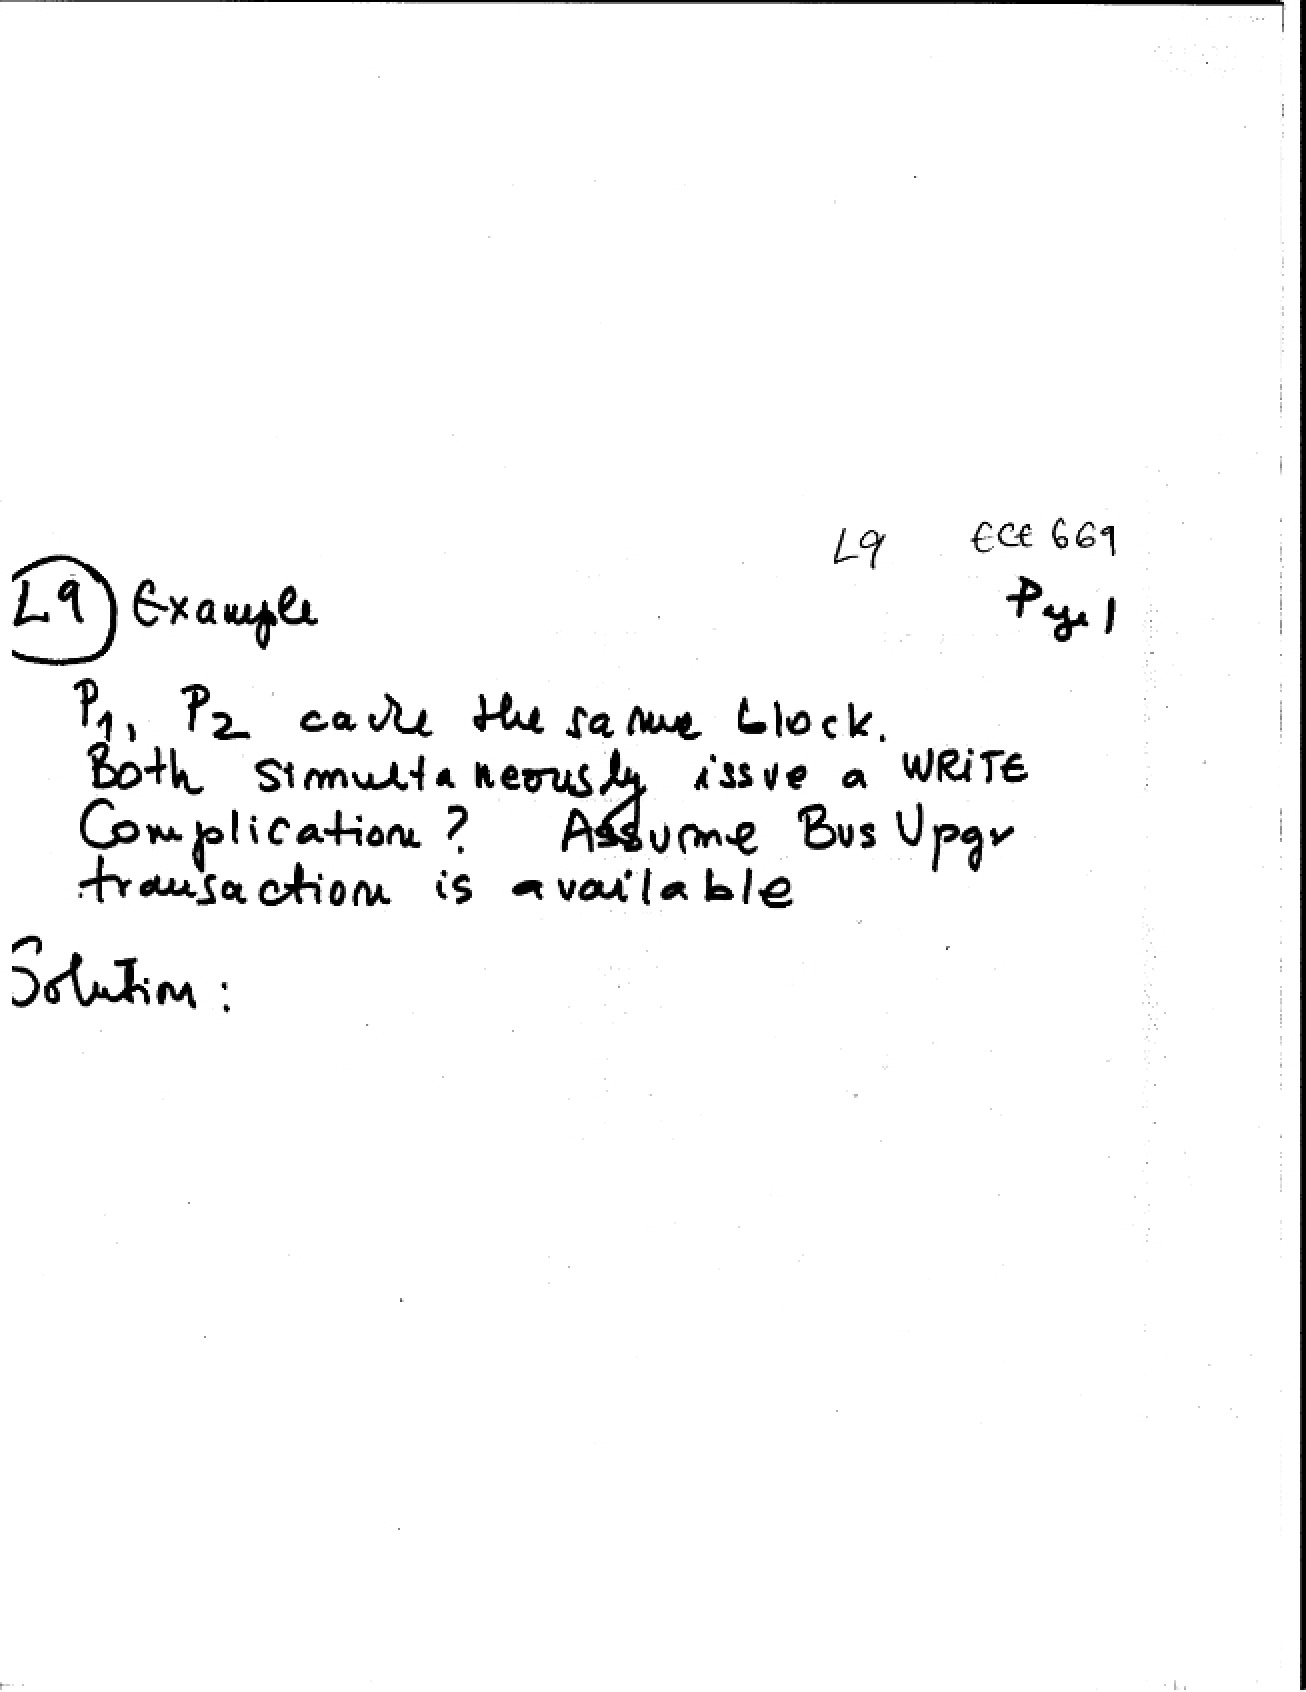 L9 ECE 669
L9 Example
Page 1
P1, P2 cache the same block.
Both simultaneously issue a WRiTE
Complication? Assume Bus Upgr
transaction is available
Solution: